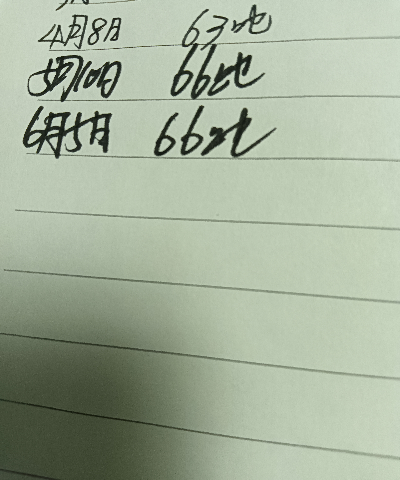 4月8日 63地
5月10日 66地
6月5日 66地